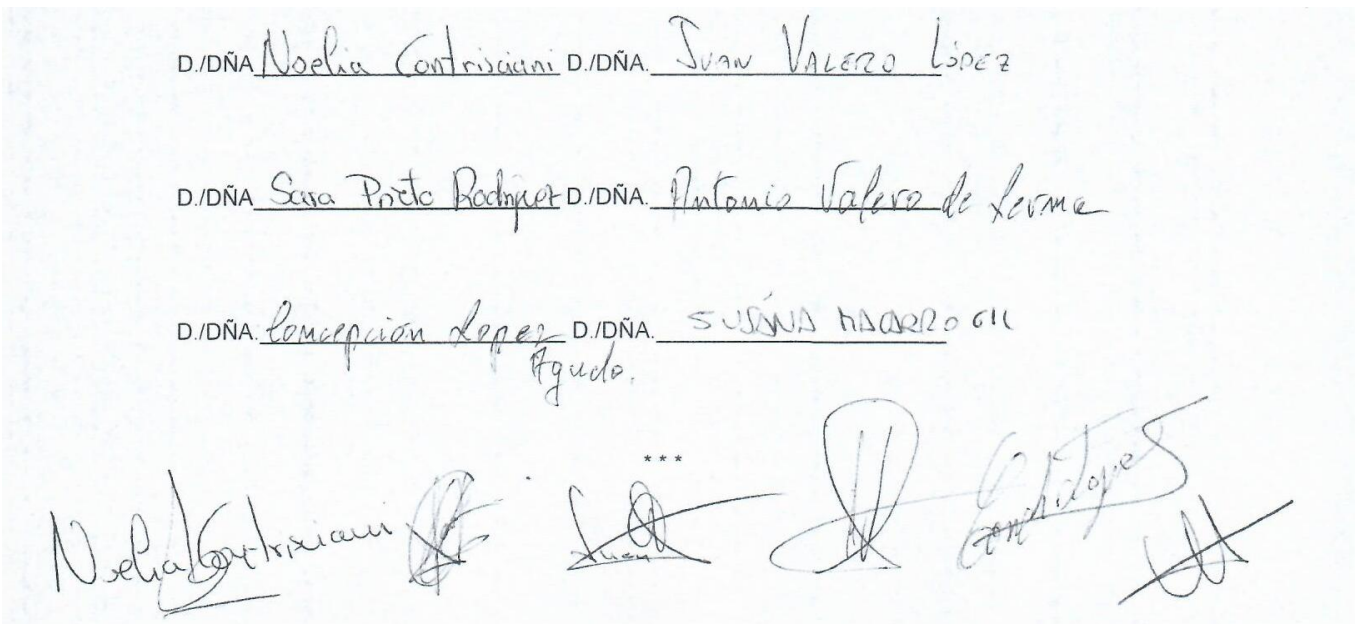 D./DÑA Noelia Contrisciani D./DÑA. JUAN VALERO LÓPEZ
D./DÑA Sara Prieto Rodríguez D./DÑA. Antonio Valero de Lerma
D./DÑA. Concepción Lopez D./DÑA. SUSANA MACARRO GIL
Agudo.
* * *
Noelia Contrisciani Juan Conchi Lopez